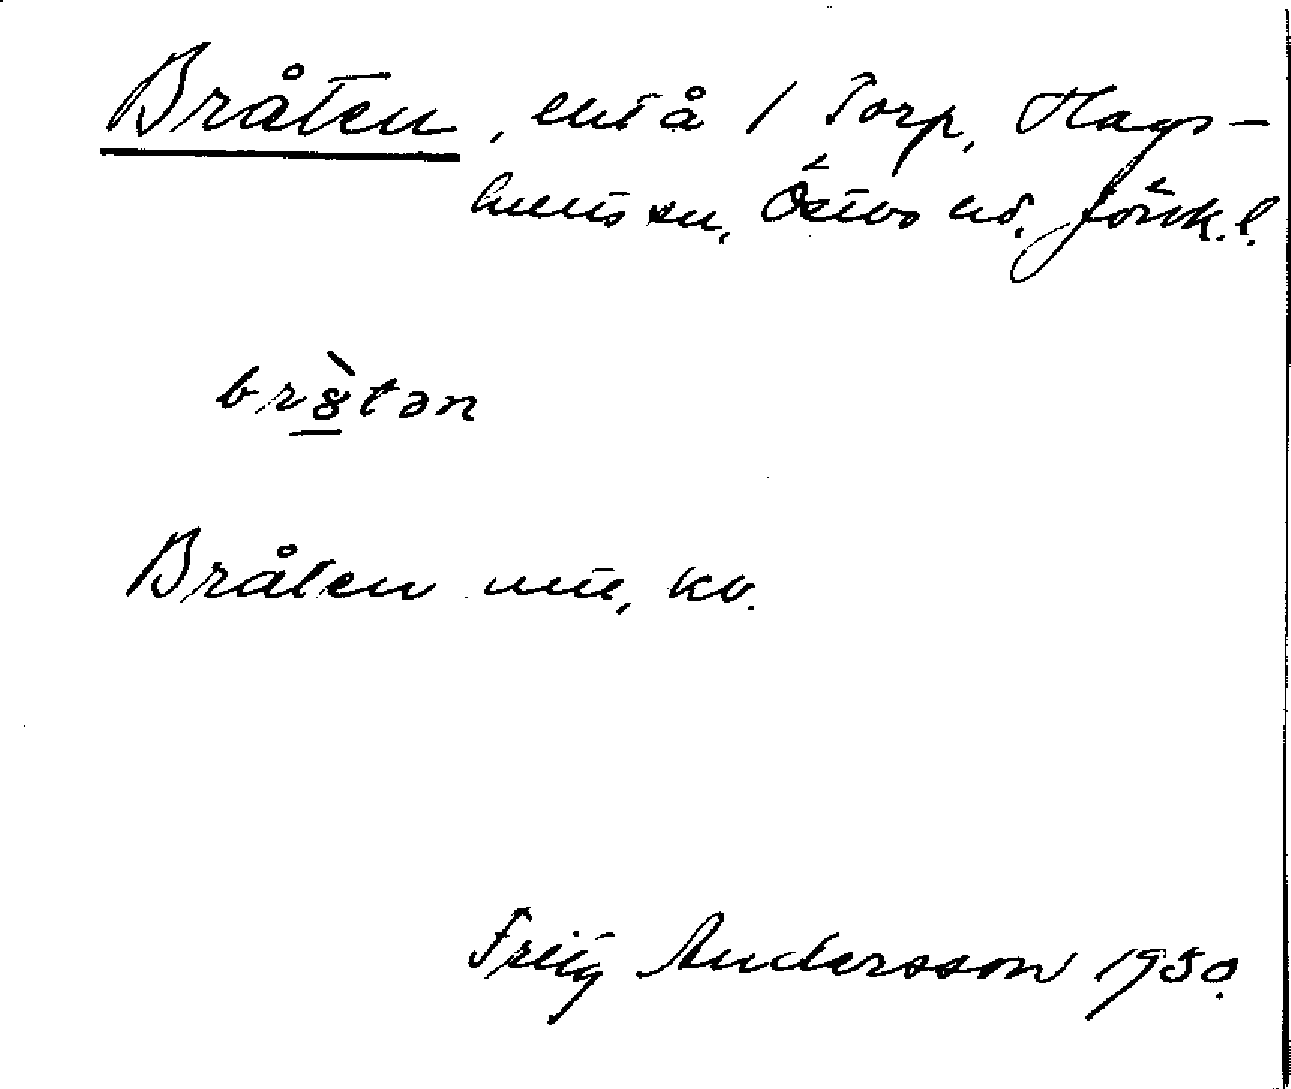 Bråten, å 1 Torp, Hags-
hults sn, Östbo hd. Jönk. l.
br8̱̀tən
Bråten
Fritz Andersson 1950.